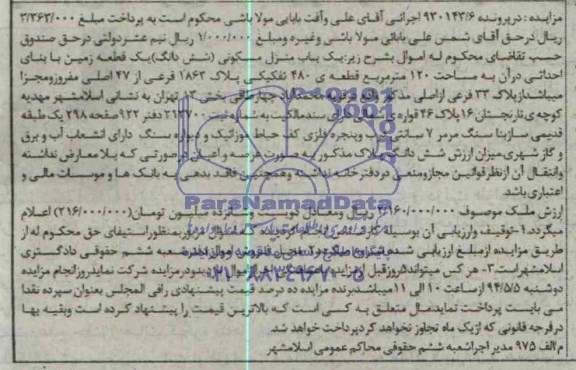 مزایده: درپرونده ۹۳۰۱۴۳/۶ اجرائی آقای علی وآفت بابایی مولا باشی محکوم است به پرداخت مبلغ ۳/۳۶۳/۰۰۰
ریال درحق آقای شمس علی بابائی مولا باشی وغیره ومبلغ ۱/۰۰۰/۰۰۰ ریال نیم عشر دولتی درحق صندوق
حسب تقاضای محکوم له اموال بشرح زیر: یک باب منزل مسکونی (شش دانگ) یک قطعه زمین با بنای
احداثی درآن به مساحت ۱۲۰ مترمربع قطعه ی ۴۸۰ تفکیکی پلاک ۱۸۶۳ فرعی از ۲۷ اصلی مفروزومجزا
میباشدازپلاک ۳۳ فرعی ازاصلی مذکور بخش ۱۲ تهران به نشانی اسلامشهر مهدیه
کوچه ی نارنجستان ۱۶ پلاک ۴۶ سندمالکیت به شماره ثبت ۲۱۳۷۰۰ دفتر ۹۲۲ صفحه ۲۹۸ یک طبقه
قدیمی سازبنا سنگ مرمر ۷ سانتی درب وپنجره فلزی کف حیاط موزائیک و دیواره سنگ دارای انشعاب آب و برق
و گاز شهری میزان ارزش شش دانگ پلاک مذکور به صورت عرصه و اعیان درصورتی که بلامعارض نداشته
وانتقال آن ازنظرقوانین مجازومنعی دردفترخانه نداشته وهمچنین فاقد بدهی به بانک ها و موسسات مالی و
اعتباری باشد
ارزش ملک موصوف ۲/۱۶۰/۰۰۰/۰۰۰ ریال ومعادل دویست وشانزده میلیون تومان(۲۱۶/۰۰۰/۰۰۰) اعلام
میگردد ۱-توقیف وارزیابی آن بوسیله کارشناس انجام بمنظوراستیفای حق محکوم له از
طریق مزایده ازمبلغ ارزیابی شده شعبه ششم حقوقی دادگستری
اسلامشهراست. ۳- هر کس میتواند ۵ روزقبل ازمزایده درمزایده شرکت نمایدروزانجام مزایده
دوشنبه ۹۴/۵/۵ ازساعت ۱۰ الی ۱۱ میباشدبرنده مزایده ده درصد قیمت پیشنهادی رافی المجلس بعنوان سپرده نقدا
می بایست پرداخت نمایدمال متعلق به کسی است که بالاترین قیمت را پیشنهاد کرده است وبقیه بها
درفرجه قانونی که ازیک ماه تجاوز نخواهد کردپرداخت خواهد شد.
م/الف ۹۷۵ مدیر اجراشعبه ششم حقوقی محاکم عمومی اسلامشهر
ParsNamadData
۰۲۱-۸۸۳۴۹۶۷۰-۵